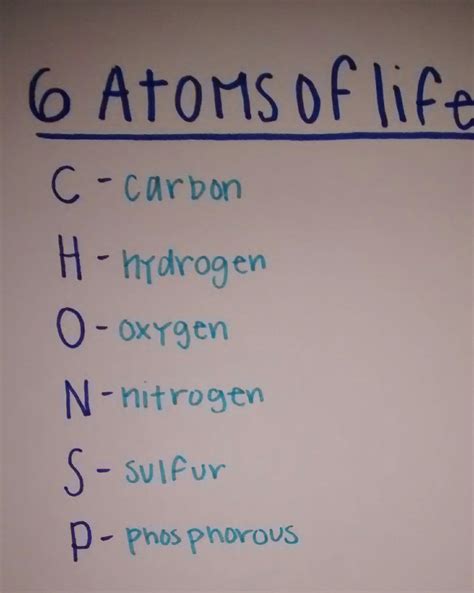 6 Atoms of life
C - carbon
H - hydrogen
O - oxygen
N - nitrogen
S - sulfur
P - phosphorous